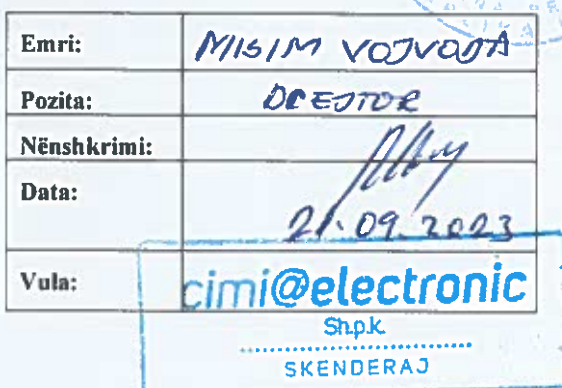 Emri: MISIM VOJVODA
Pozita: DREJTOR
Nënshkrimi:
Data: 21.09.2023
Vula: cimi@electronic
Sh.p.k.
SKENDERAJ